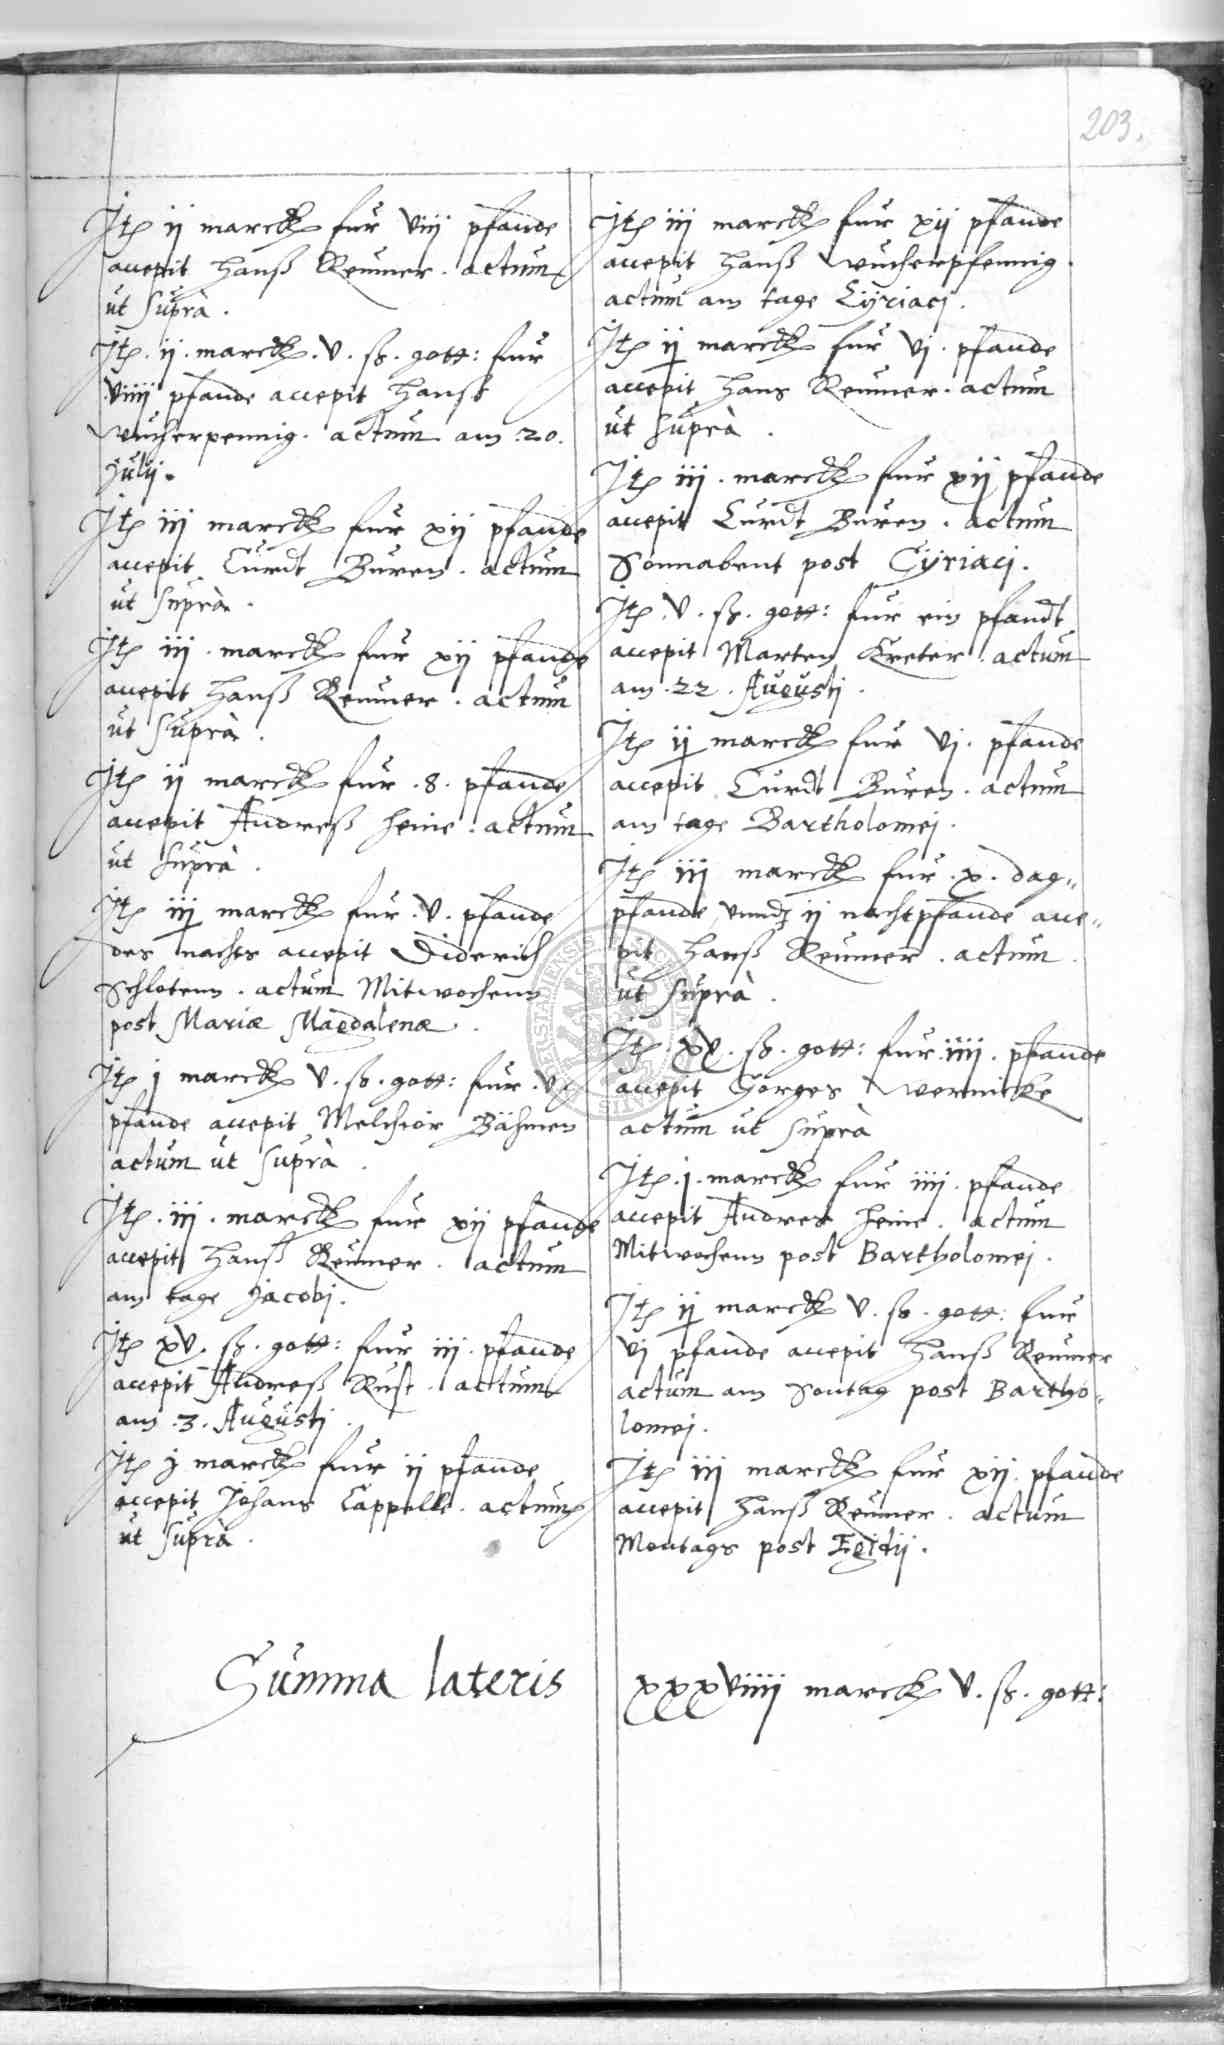 203.
Itē ij marck fur viij pfande
accepit Hanß Keuner. actum
ut suprà.
Itē. ij. marck. v. ß. gott: fur
viiij pfande accepit Hanß
Wucherpennig. actum am 20.
Julij.
Itē iij marck fur xij pfande
accepit Curdt Buren. actum
ut suprà.
Itē iij. marck fur xij pfande
accepit Hanß Keuner. actum
ut suprà.
Itē ij marck fur .8. pfande
accepit Andreß Heine. actum
ut suprà.
Itē iij marck fur .v. pfande
des nachts accepit Diderich
Schlotenn. actum Mitwochenn
post Mariæ Magdalenæ.
Itē j marck v. ß. gott: fur .vj
pfande accepit Melchior Bähmen
actum ut suprà.
Itē. iij. marck fur xij pfande
accepit Hanß Keuner. actum
am tage Jacobj.
Itē xv. ß. gott: fur iij. pfande
accepit Andreß Rust. actum
am .3. Augustj.
Itē j marck fur ij pfande
accepit Johans Cappelle. actum
ut suprà.
Itē iij marck fur xij pfande
accepit Hanß Wucherpfennig.
actum am tage Cÿriacj.
Itē ij marck fur vj. pfande
accepit Hans Keuner. actum
ut suprà.
Itē iij. marck fur xij pfande
accepit Curdt Buren. actum
Sonnabent post Cÿriacj.
Itē v. ß. gott: fur ein pfandt
accepit Marten Kreter. actum
am .22. Augustj.
Itē ij marck fur vj. pfande
accepit Curdt Buren. actum
am tage Bartholomej.
Itē iij marck fur .x. dag„
pfande vnndt ij nachtpfande acce„
pit Hanß Keuner. actum
ut suprà.
Itē. xv. ß. gott: fur .iiij. pfande
accepit Gorges Wernicke
actum ut suprà
Itē. j. marck fur iiij. pfande
accepit Andres Heine. actum
Mitwochenn post Bartholomej.
Itē ij marck v. ß. gott: fur
vj pfande accepit Hanß Keuner
actum am Sontag post Bartho„
lomej.
Itē iij marck fur xij. pfande
accepit Hanß Keuner. actum
Montags post Egidij.
Summa lateris xxxviiij marck v. ß. gott: